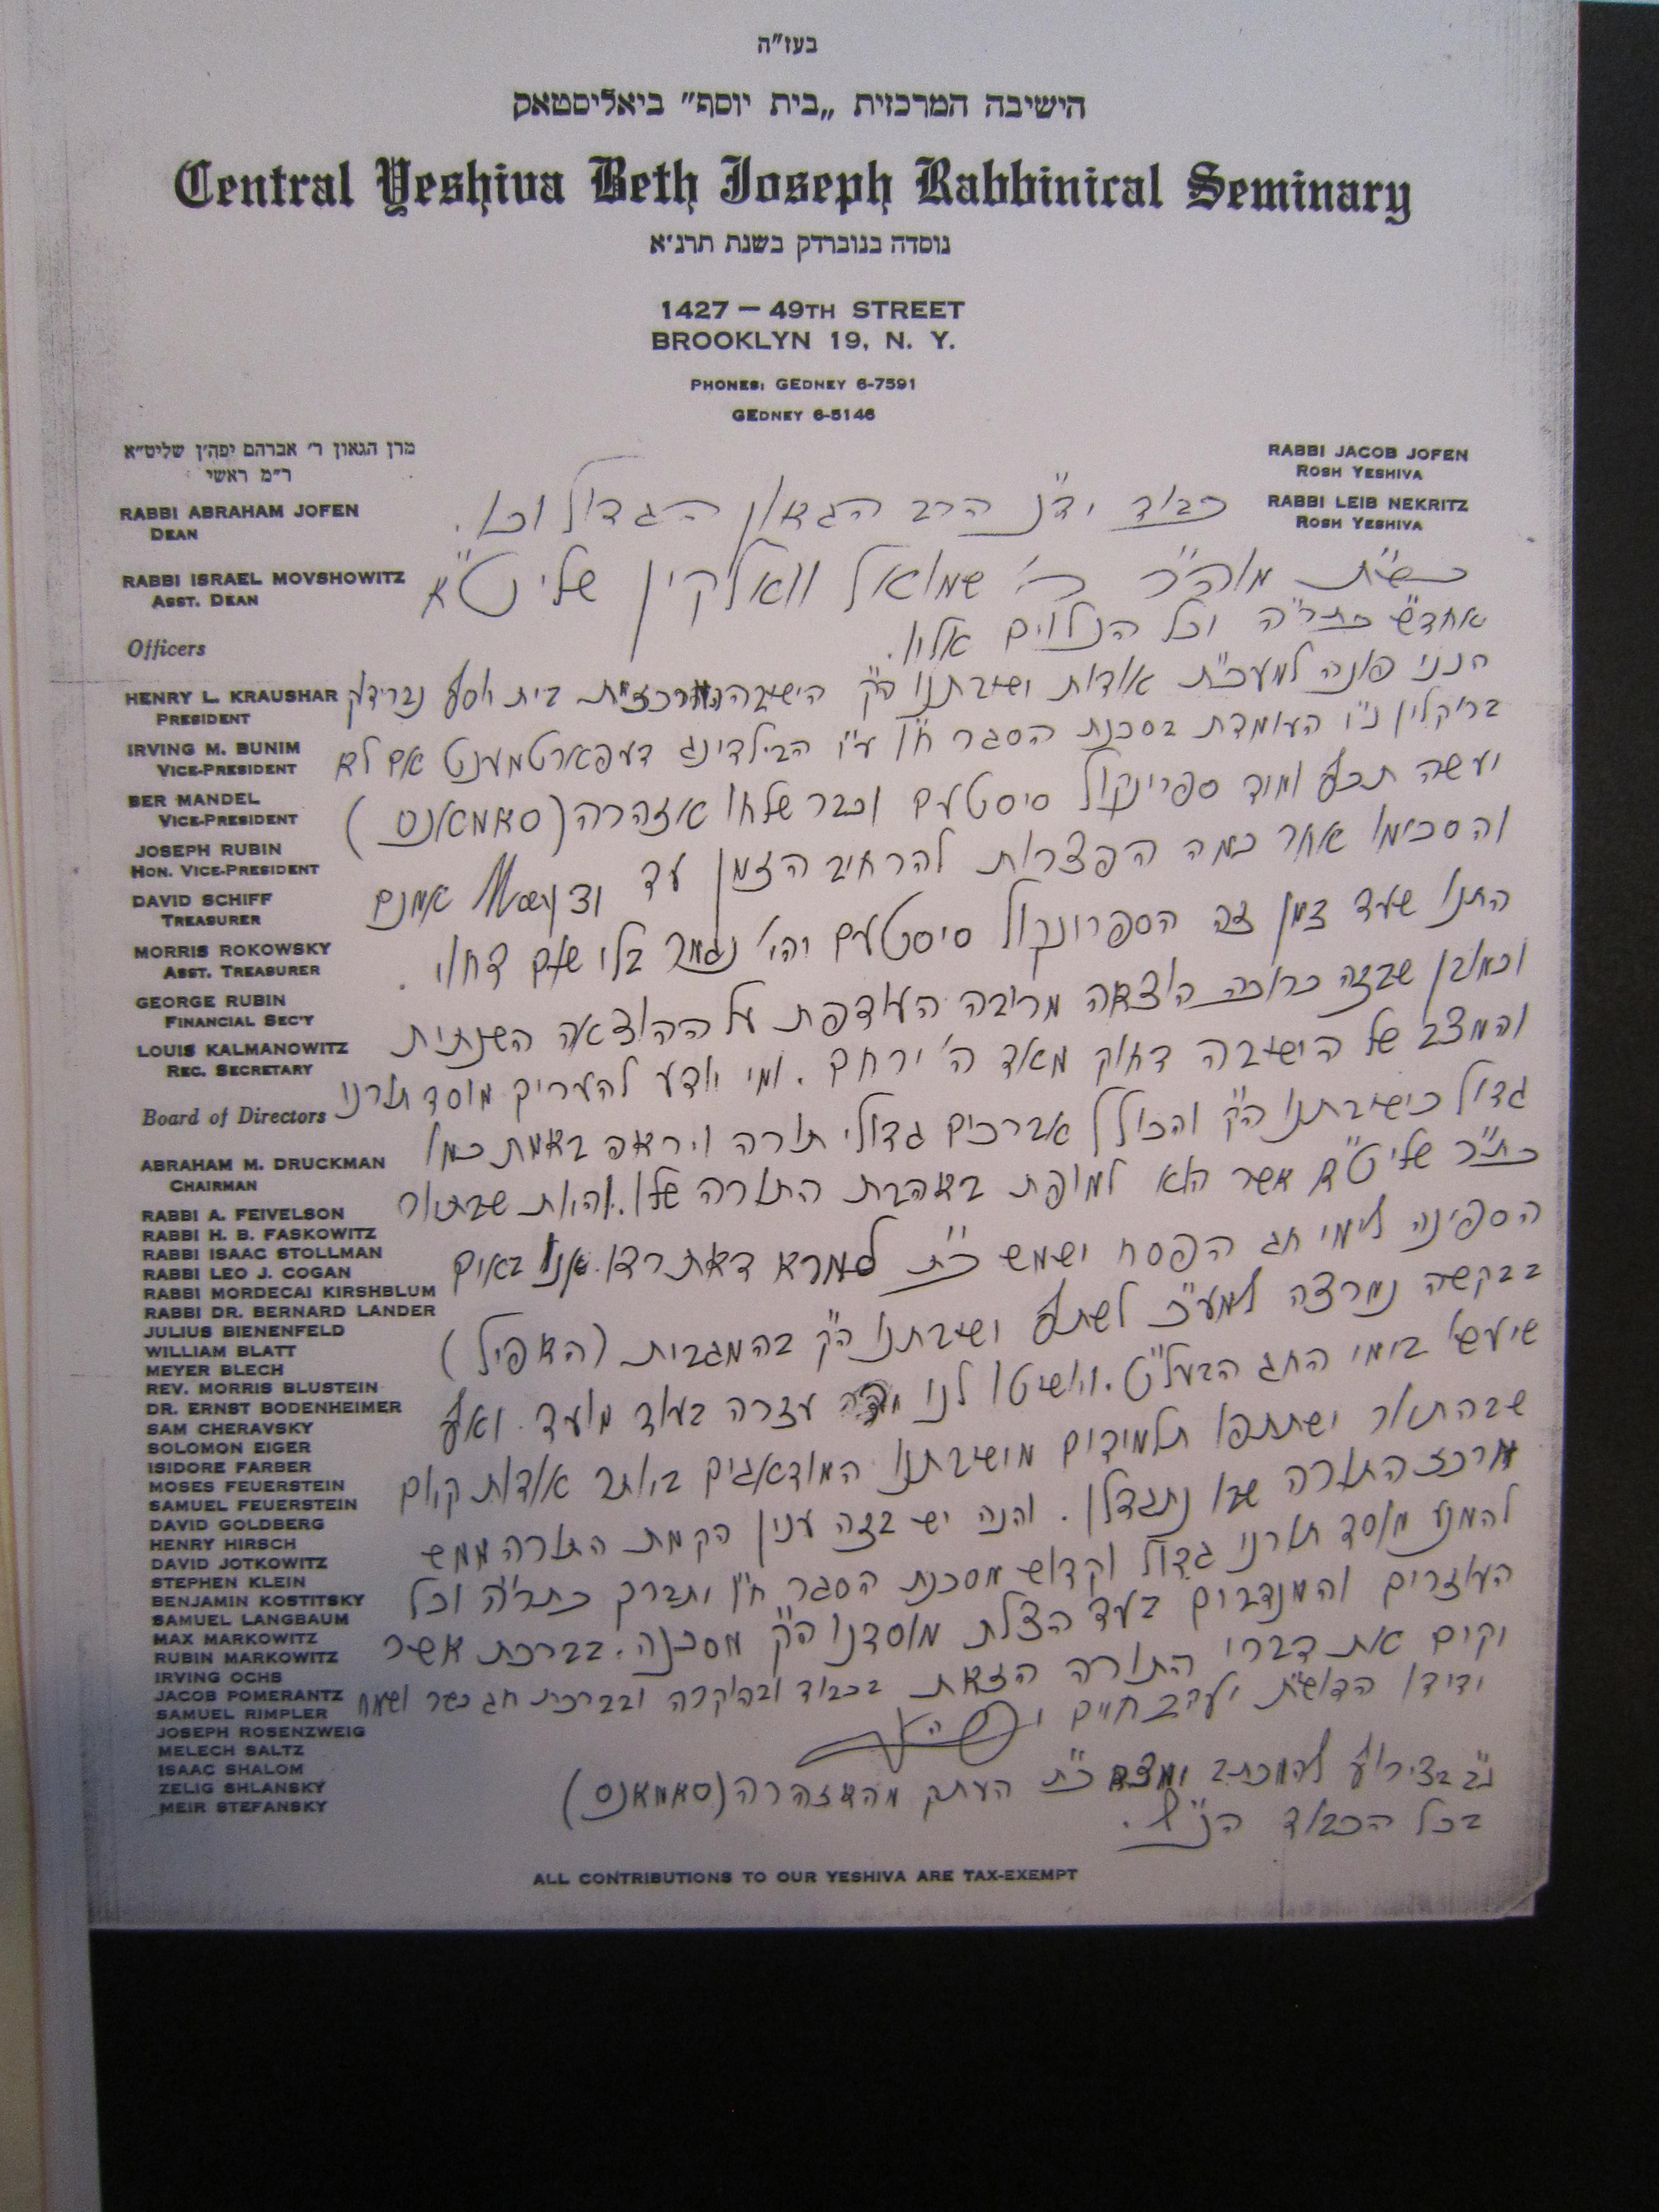 בעז"ה
הישיבה המרכזית „בית יוסף" ביאליסטאק
Central Yeshiva Beth Joseph Rabbinical Seminary
נוסדה בנוברדק בשנת תרנ"א
1427 — 49TH STREET
BROOKLYN 19, N. Y.
PHONES: GEDNEY 6-7591
GEDNEY 6-5146
מרן הגאון ר' אברהם יפה'ן שליט"א
ר"מ ראשי
RABBI ABRAHAM JOFEN
DEAN
RABBI ISRAEL MOVSHOWITZ
ASST. DEAN
Officers
HENRY L. KRAUSHAR
PRESIDENT
IRVING M. BUNIM
VICE-PRESIDENT
BER MANDEL
VICE-PRESIDENT
JOSEPH RUBIN
HON. VICE-PRESIDENT
DAVID SCHIFF
TREASURER
MORRIS ROKOWSKY
ASST. TREASURER
GEORGE RUBIN
FINANCIAL SEC'Y
LOUIS KALMANOWITZ
REC. SECRETARY
Board of Directors
ABRAHAM M. DRUCKMAN
CHAIRMAN
RABBI A. FEIVELSON
RABBI H. B. FASKOWITZ
RABBI ISAAC STOLLMAN
RABBI LEO J. COGAN
RABBI MORDECAI KIRSHBLUM
RABBI DR. BERNARD LANDER
JULIUS BIENENFELD
WILLIAM BLATT
MEYER BLECH
REV. MORRIS BLUSTEIN
DR. ERNST BODENHEIMER
SAM CHERAVSKY
SOLOMON EIGER
ISIDORE FARBER
MOSES FEUERSTEIN
SAMUEL FEUERSTEIN
DAVID GOLDBERG
HENRY HIRSCH
DAVID JOTKOWITZ
STEPHEN KLEIN
BENJAMIN KOSTITSKY
SAMUEL LANGBAUM
MAX MARKOWITZ
RUBIN MARKOWITZ
IRVING OCHS
JACOB POMERANTZ
SAMUEL RIMPLER
JOSEPH ROSENZWEIG
MELECH SALTZ
ISAAC SHALOM
ZELIG SHLANSKY
MEIR STEFANSKY
RABBI JACOB JOFEN
ROSH YESHIVA
RABBI LEIB NEKRITZ
ROSH YESHIVA
כבוד יד"נ הרב הגאון הגדול וכו'.
כש"ת מוה"ר ר' שמואל וואלקין שליט"א
אחדש"כתר"ה וכל הנלוים אליו.
הנני פונה למעכ"ת אודות ישיבתנו הק' הישיבה המרכזית בית יוסף נברידק
ברוקלין נ"י העומדת בסכנת הסגר ח"ו ע"י הבילדינג דעפארטמענט אם לא
יעשה תכף ומיד ספרינקול סיסטעם וכבר שלחו אזהרה (סאמאנס)
והסכימו אחר כמה הפצרות להרחיב הזמן עד May אמנם
התנו שעד זמן זה הספרונקול סיסטעם יהי' נגמר בלי שום דחוי.
וכמובן שבזה כרוכה הוצאה מריבה העודפת על ההוצאה השנתית
והמצב של הישיבה דחוק מאד ה' ירחם. ומי יודע להעריך מוסד תורני
גדול כישיבתנו הק' והכולל אברכים גדולי תורה ויראה באמת כמו
כת"ר שליט"א אשר הוא למופת באהבת התורה שלו. והיות שבתור
הספינה לימי חג הפסח ישמש כ"ת למרא דאתרא אנו באים
בבקשה נמרצה למע"כ לשתף ישיבתנו הק' בהמגבות (האפיל)
שיעשו בימי החג הבעל"ט. ויושיטו לנו עזרה בעוד מועד. ואף
שבהתור ישתתפו תלמידים מישיבתנו המודאגים ביותר אודות קיום
מרכז התורה שבו נתגדלו. והנה יש בזה ענין הקמת התורה ממש
להמנע מוסד תורני גדול וקדוש מסכנת הסגר ח"ו ותברך כתר"ה וכל
העוזרים והמנדבים בעד הצלת מוסדנו הק' מסכנה. בברכת אשר
יקים את דברי התורה הזאת בכבוד ובהוקרה ובברכת חג כשר ושמח
ידידו הדוש"ת יעקב חיים
נ"ב בצירוף להמכתב ימצא כ"ת העתק מהאזהרה (סאמאנס)
בכל הכבוד הנ"ל.
ALL CONTRIBUTIONS TO OUR YESHIVA ARE TAX-EXEMPT